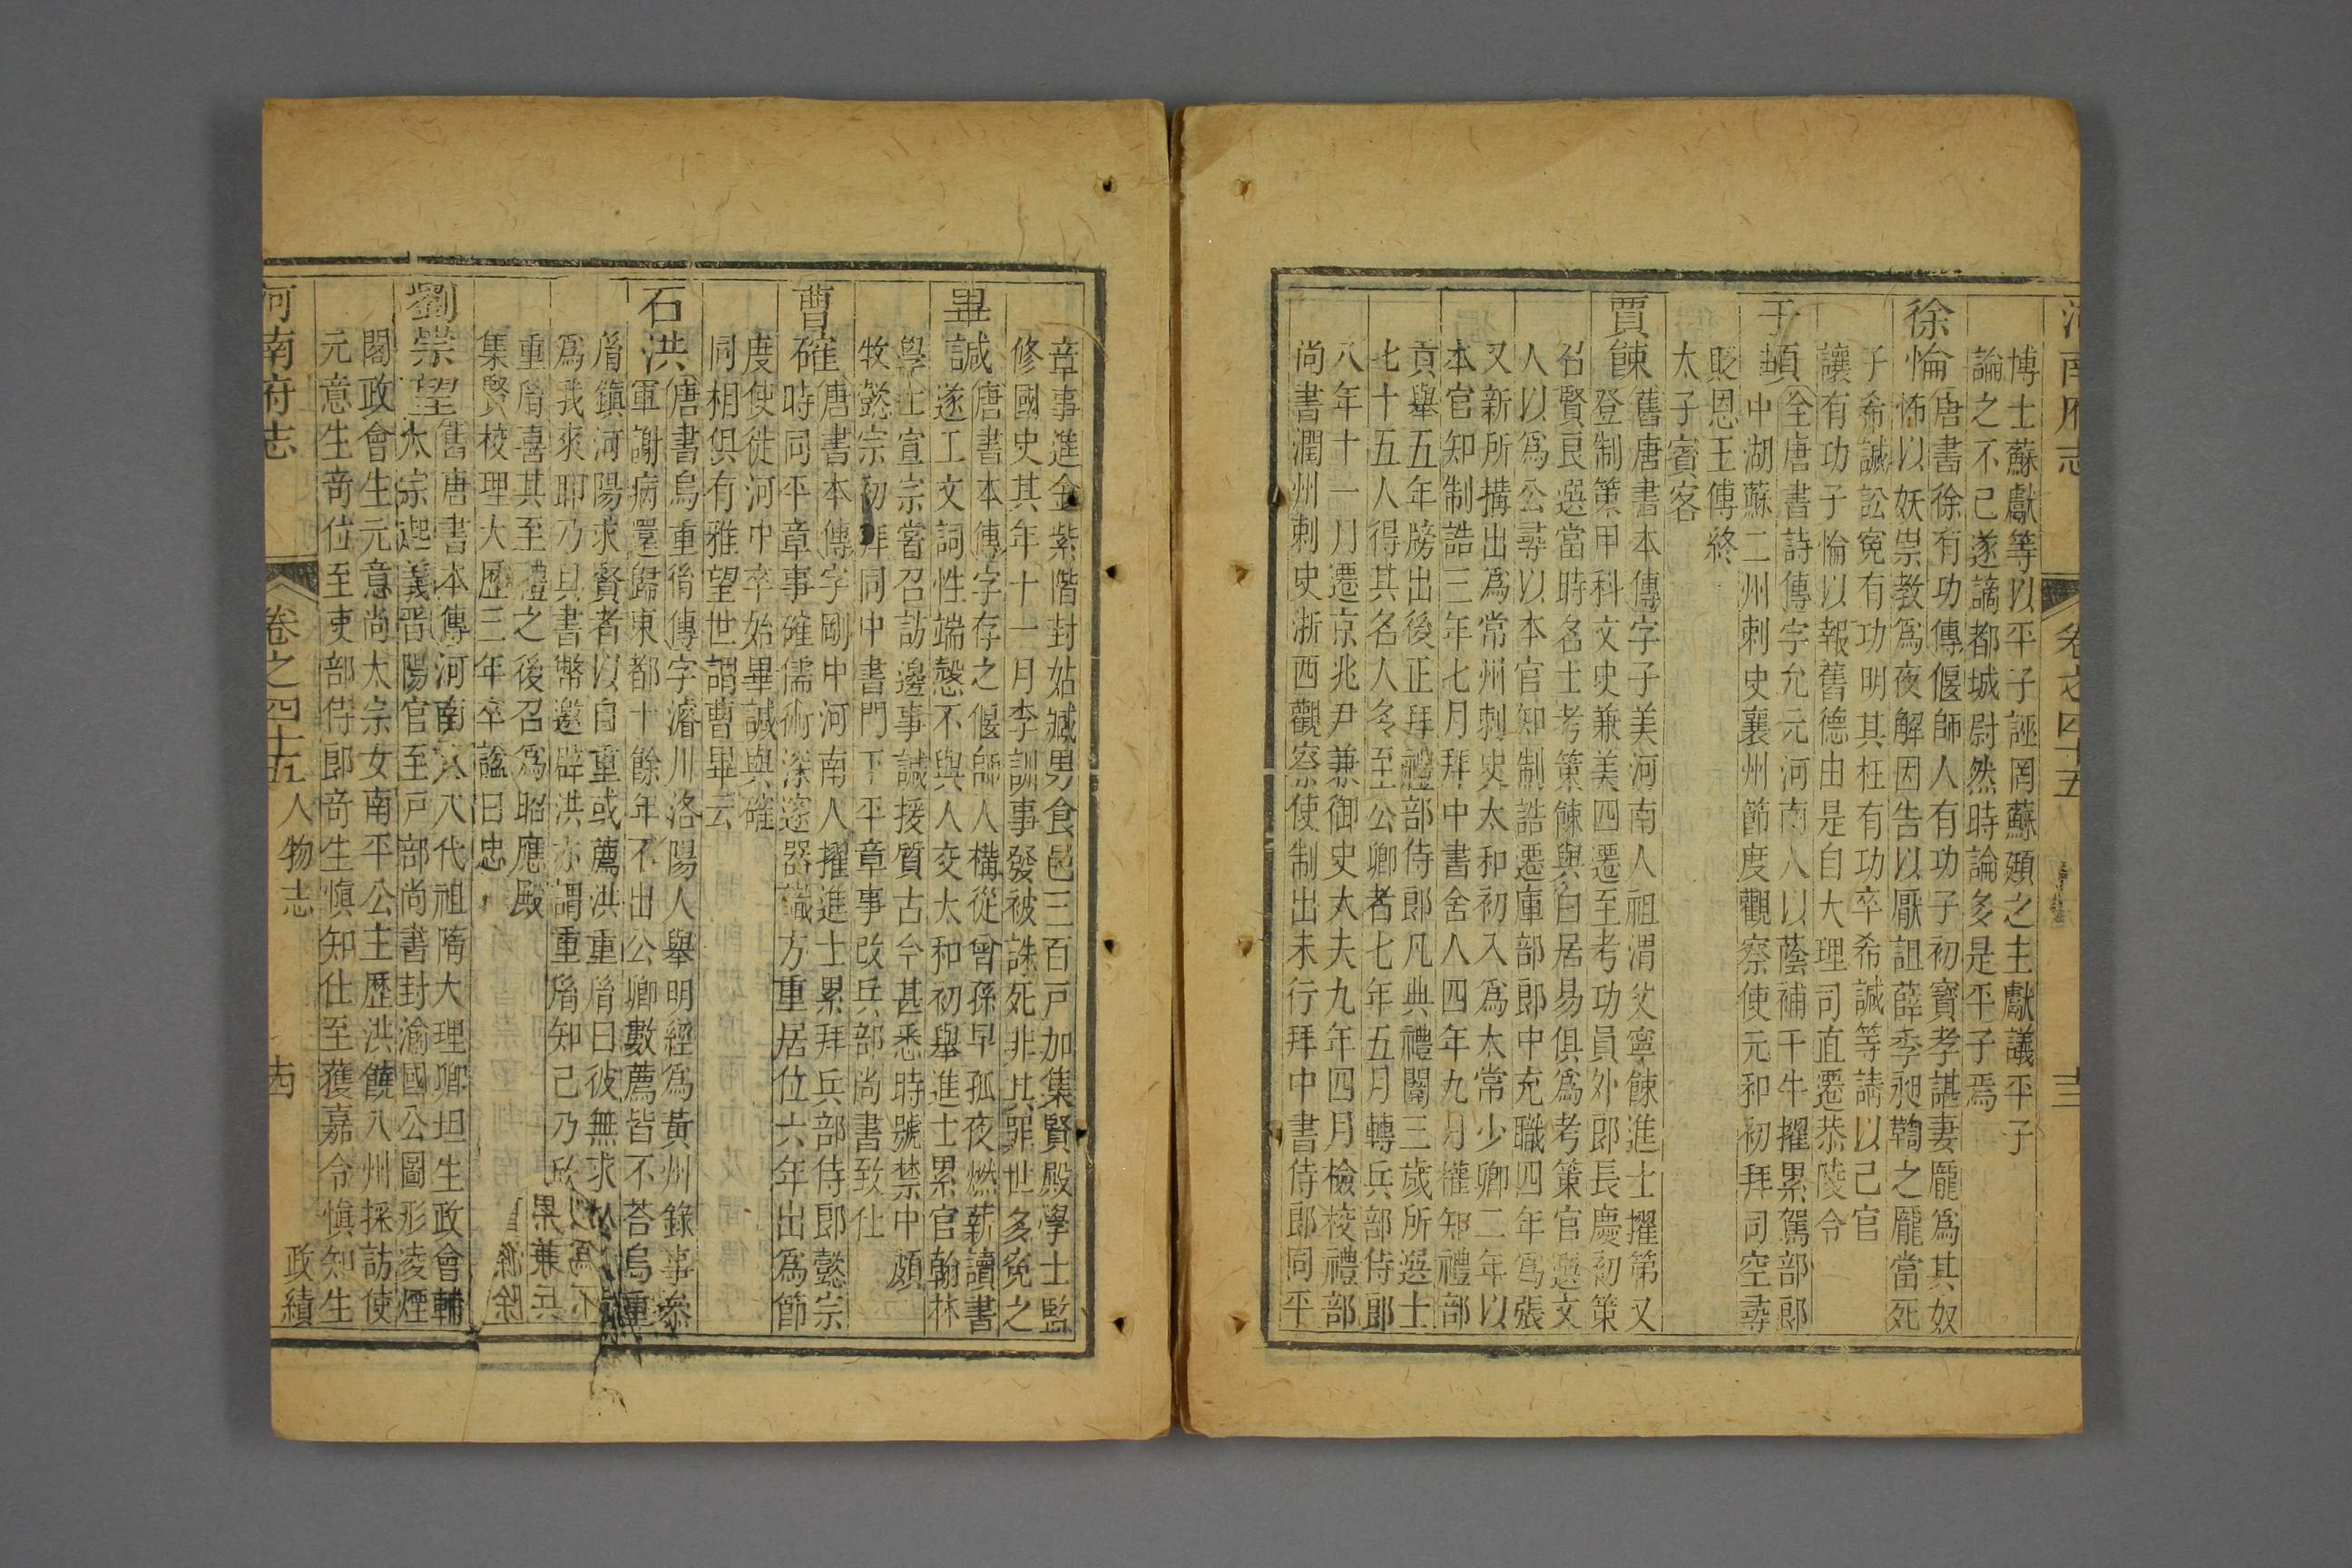 河南府志
卷之四十五
十三
博士蘇獻等以平子誣罔蘇頲之主獻議平子
論之不已遂謫都城尉然時論多是平子焉
徐惀唐書徐有功傳偃師人有功子初竇孝諶妻龐爲其奴
怖以妖祟教爲夜解因告以厭詛薛季昶鞫之龐當死
子希諴訟寃有功明其枉有功卒希諴等請以己官
讓有功子惀以報舊德由是自大理司直遷恭陵令
于頔全唐書詩傳字允元河南人以蔭補千牛擢累駕部郎
中湖蘇二州刺史襄州節度觀察使元和初拜同空尋
貶恩王傅終
太子賓客
賈餗舊唐書本傳字子美河南人祖渭父寧餗進士擢第又
登制策甲科文史兼美四遷至考功員外郎長慶初策
召賢良選當時名士考策餗與白居易俱爲考策官選文
人以爲公尋以本官知制誥遷庫部郎中充職四年爲張
又新所搆出爲常州刺史太和初入爲太常少卿二年以
本官知制誥三年七月拜中書舍人四年九月權知禮部
貢舉五年牓出後正拜禮部侍郎凡典禮闈三歲所選士
七十五人得其名人多至公卿者七年五月轉兵部侍郎
八年十一月遷京兆尹兼御史大夫九年四月檢校禮部
尚書潤州刺史浙西觀察使制出未行拜中書侍郎同平
章事進金紫階封姑臧男食邑三百戸加集賢殿學士監
修國史其年十一月李訓事發被誅死非其罪世多寃之
畢諴唐書本傳字存之偃師人構從曾孫早孤夜燃薪讀書
遂工文詞性端慤不與人交太和初舉進士累官翰林
學士宣宗嘗召訪邊事諴援質古今甚悉時號禁中頗
牧懿宗初拜同中書門下平章事改兵部尚書致仕
曹確唐書本傳字剛中河南人擢進士累拜兵部侍郎懿宗
時同平章事確儒術深邃器識方重居位六年出爲節
度使徙河中卒始畢諴與確
同相俱有雅望世謂曹畢云
石洪唐書烏重胤傳字濬川洛陽人舉明經爲黃州錄事參
軍謝病還歸東都十餘年不出公卿數薦皆不荅烏重
胤鎮河陽求賢者以自重或薦洪重胤曰彼無求
爲我來耶乃具書幣邀辟洪亦謂重胤知己乃欣
重胤喜其至禮之後召爲昭應
集賢校理大歷三年卒諡曰忠
劉崇望舊唐書本傳河南人八代祖隋大理卿坦生政會輔
太宗起義晋陽官至戸部尚書封渝國公圖形凌煙
閣政會生元意尚太宗女南平公主歷洪饒八州採訪使
元意生奇位至吏部侍郎奇生愼知仕至獲嘉令愼知生
河南府志
卷之四十五
人物志
政績
古